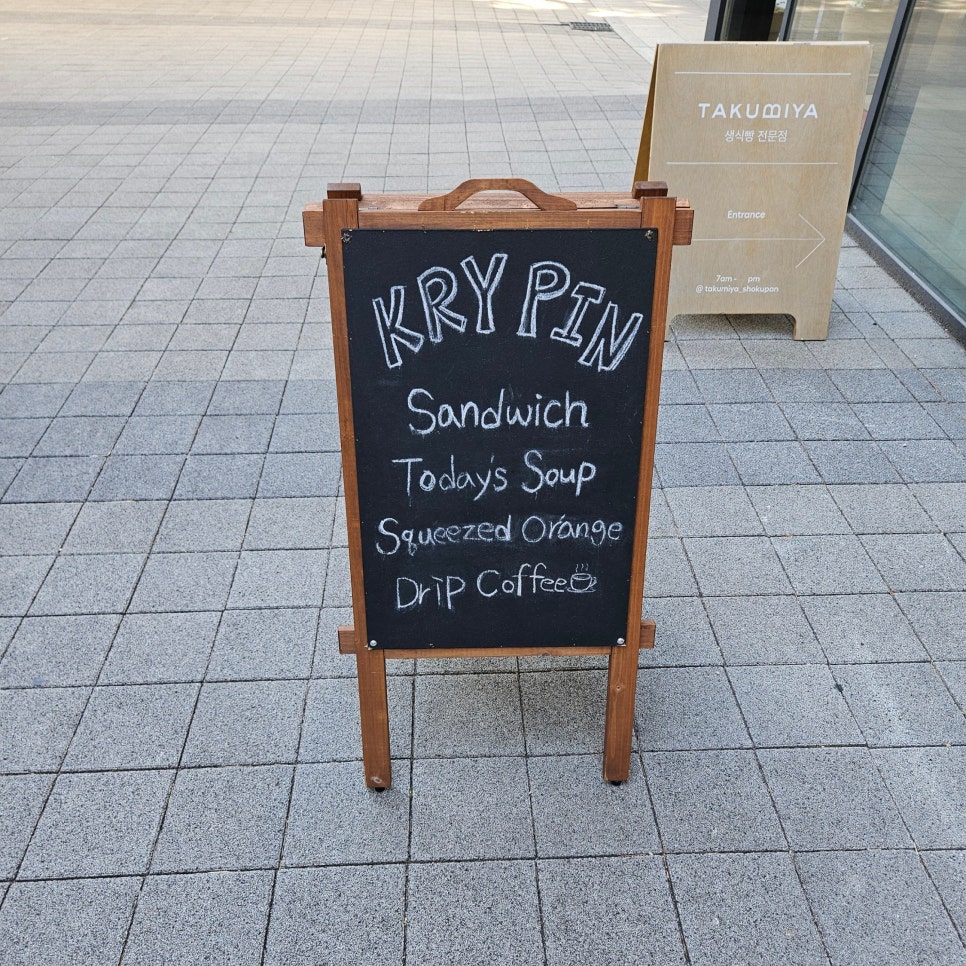 KRY PIN
Sandwich
Today's Soup
Squeezed Orange
Drip Coffee
TAKUMIYA
생식빵 전문점
Entrance
7am - pm
@takumiya_shokupan